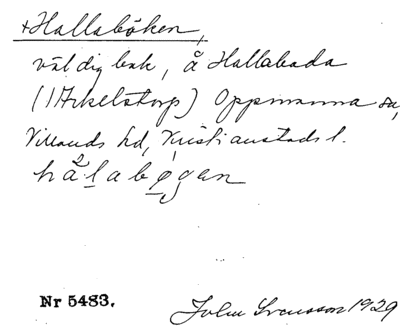 +Hallaböken,
väldig bok, å Hallaboda
(1 Arkelstorp) Oppmanna sn,
Villands hd, Kristianstads l.
hålabøgen
Nr 5483. John Svensson 1929